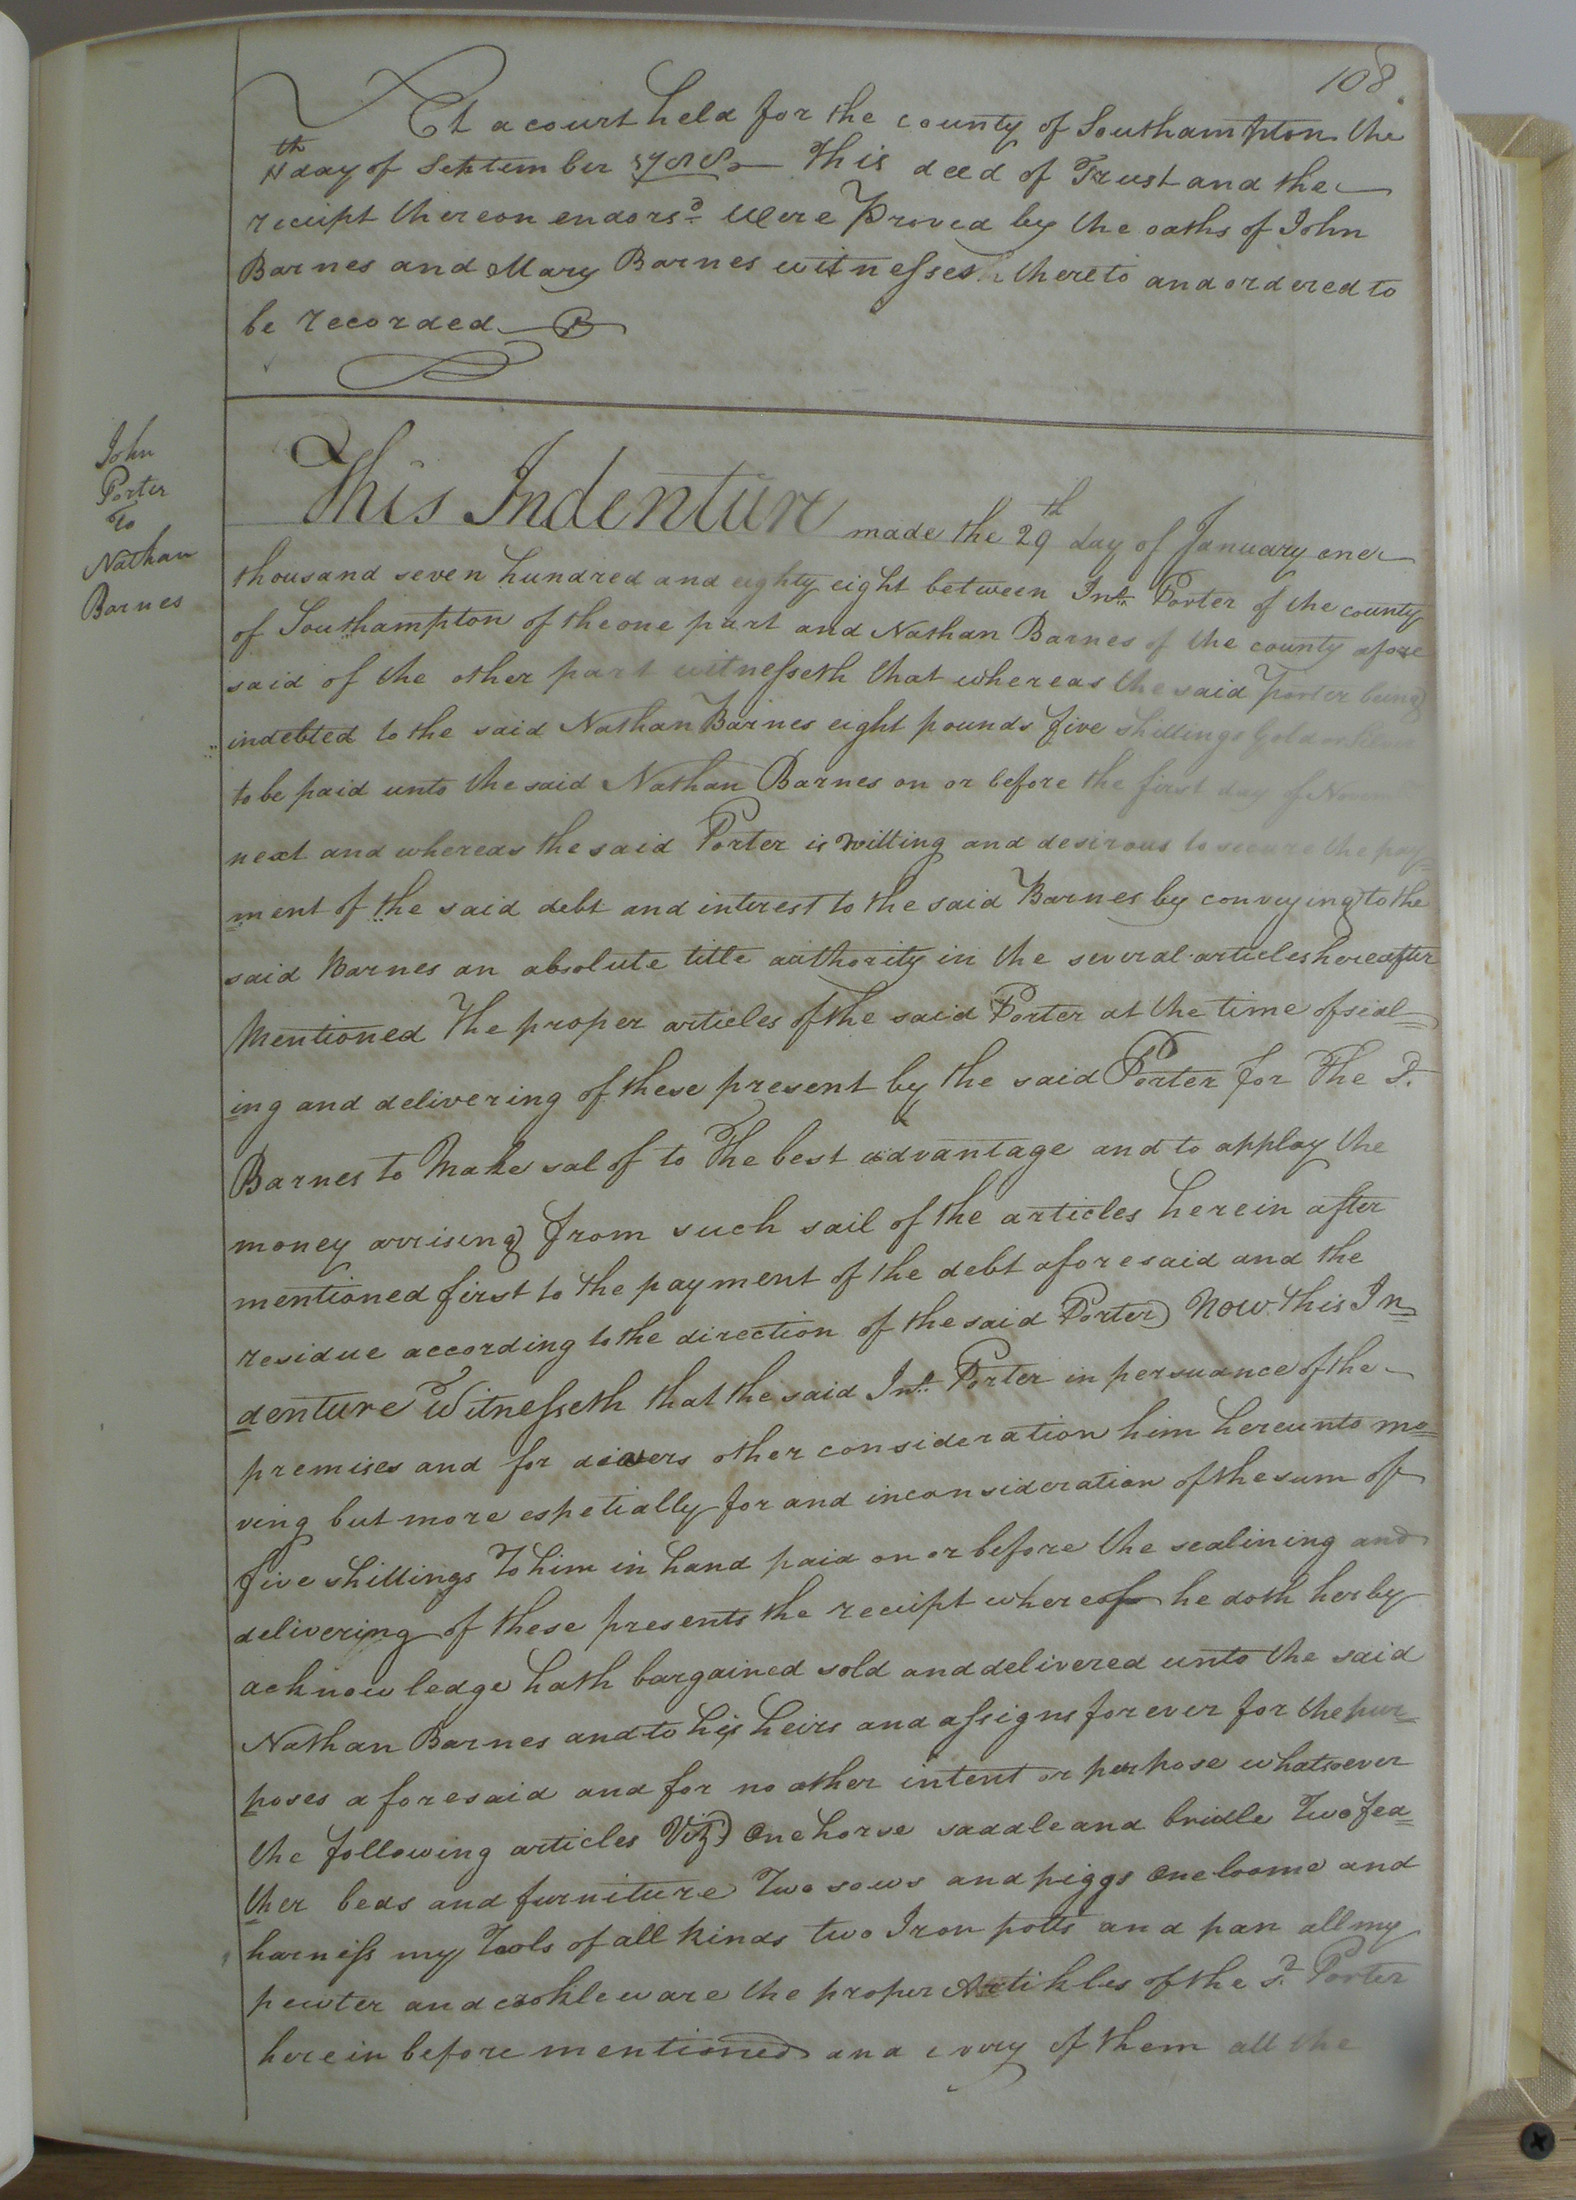 108.
At a court held for the county of Southampton the
11th day of September 1788 This deed of Trust and the
receipt thereon endorsd. Were Proved by the oaths of John
Barnes and Mary Barnes witnesses thereto and ordered to
be recorded
John
Porter
To
Nathan
Barnes
This Indenture made the 29th day of January one
thousand seven hundred and eighty eight between Jno. Porter of the county
of Southampton of the one part and Nathan Barnes of the county afore
said of the other part witnesseth that whereas the said Porter being
indebted to the said Nathan Barnes eight pounds five shillings Gold or
to be paid unto the said Nathan Barnes on or before the first day of
next and whereas the said Porter is willing and desirous to secure the pay=
ment of the said debt and interest to the said Barnes by conveying to the
said Barnes an absolute title authority in the several articles hereafter
Mentioned The proper articles of the said Porter at the time of seal=
ing and delivering of these present by the said Porter for The Sd.
Barnes to Make sal of to The best advantage and to applay the
money arrising from such sail of the articles herein after
mentioned first to the payment of the debt aforesaid and the
residue according to the direction of the said Porter) Now this In=
denture Witnesseth that the said Jno. Porter in persuance of the
premises and for divers other consideration him hereunto mo=
ving but more espetially for and in consideration of the sum of
five shillings To him in hand paid on or before the sealining and
delivering of these presents the receipt whereof he doth herby
acknowledge hath bargained sold and delivered unto the said
Nathan Barnes and to his heirs and assigns forever for the pur=
poses aforesaid and for no other intent or perpose whatsoever
the following articles Viz) One horse saddle and bridle Two fea=
ther beds and furniture Two sows and piggs One loome and
harness my Tools of all kinds two Iron potts and pan all my
pewter and crokleware the proper Artikles of the Sd. Porter
herein before mentioned and every of them all the